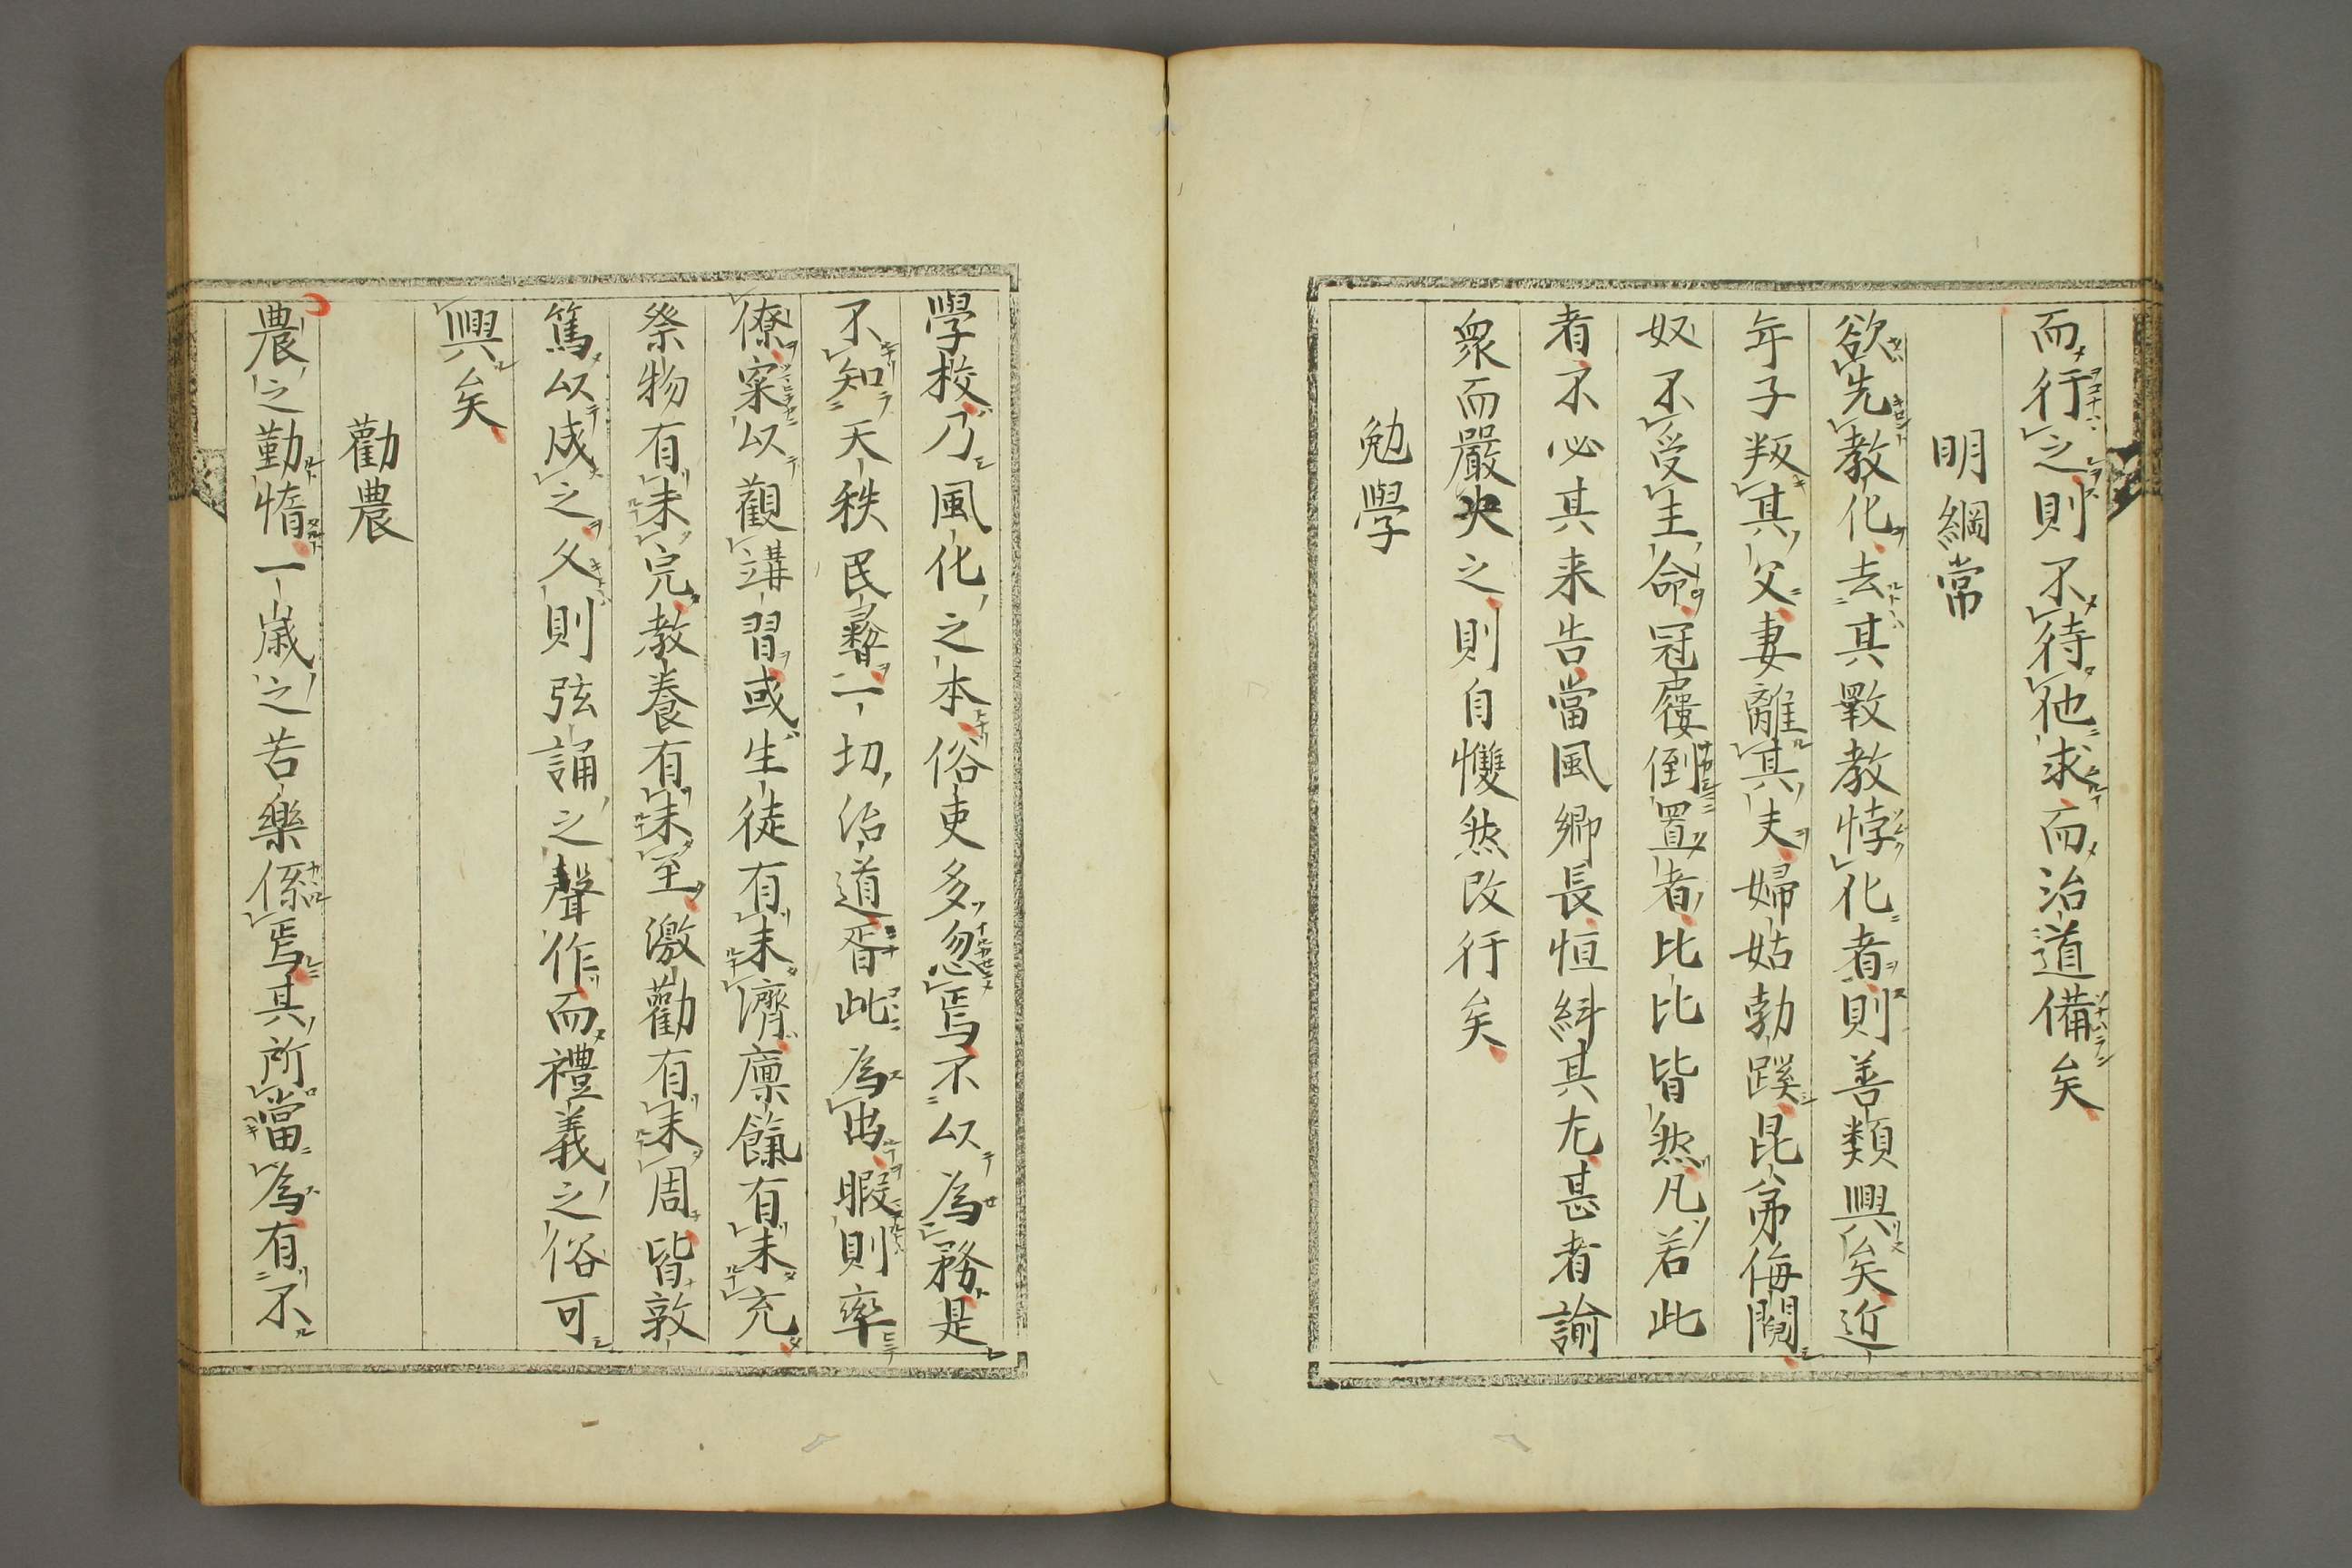 而行之則不待他求而治道備矣
明綱常
欲先教化去其斁教悖化者則善類興矣近
年子叛其父妻離其夫婦姑勃蹊昆弟侮鬩
奴不受主命冠屨倒置者比比皆然凡若此
者不必其来告當風郷長恒糾其尤甚者諭
衆而嚴决之則自戄然改行矣
勉學
學校乃風化之本俗吏多忽焉不以為務是
不知天秩民彝一切治道胥此為出暇則率
僚寀以觀講習或生徒有未濟廩餼有未充
祭物有未完教養有未至激勸有未周皆敦
篤以成之久則弦誦之聲作而禮義之俗可
興矣
勸農
農之勤惰一歳之苦樂係焉其所當為有不